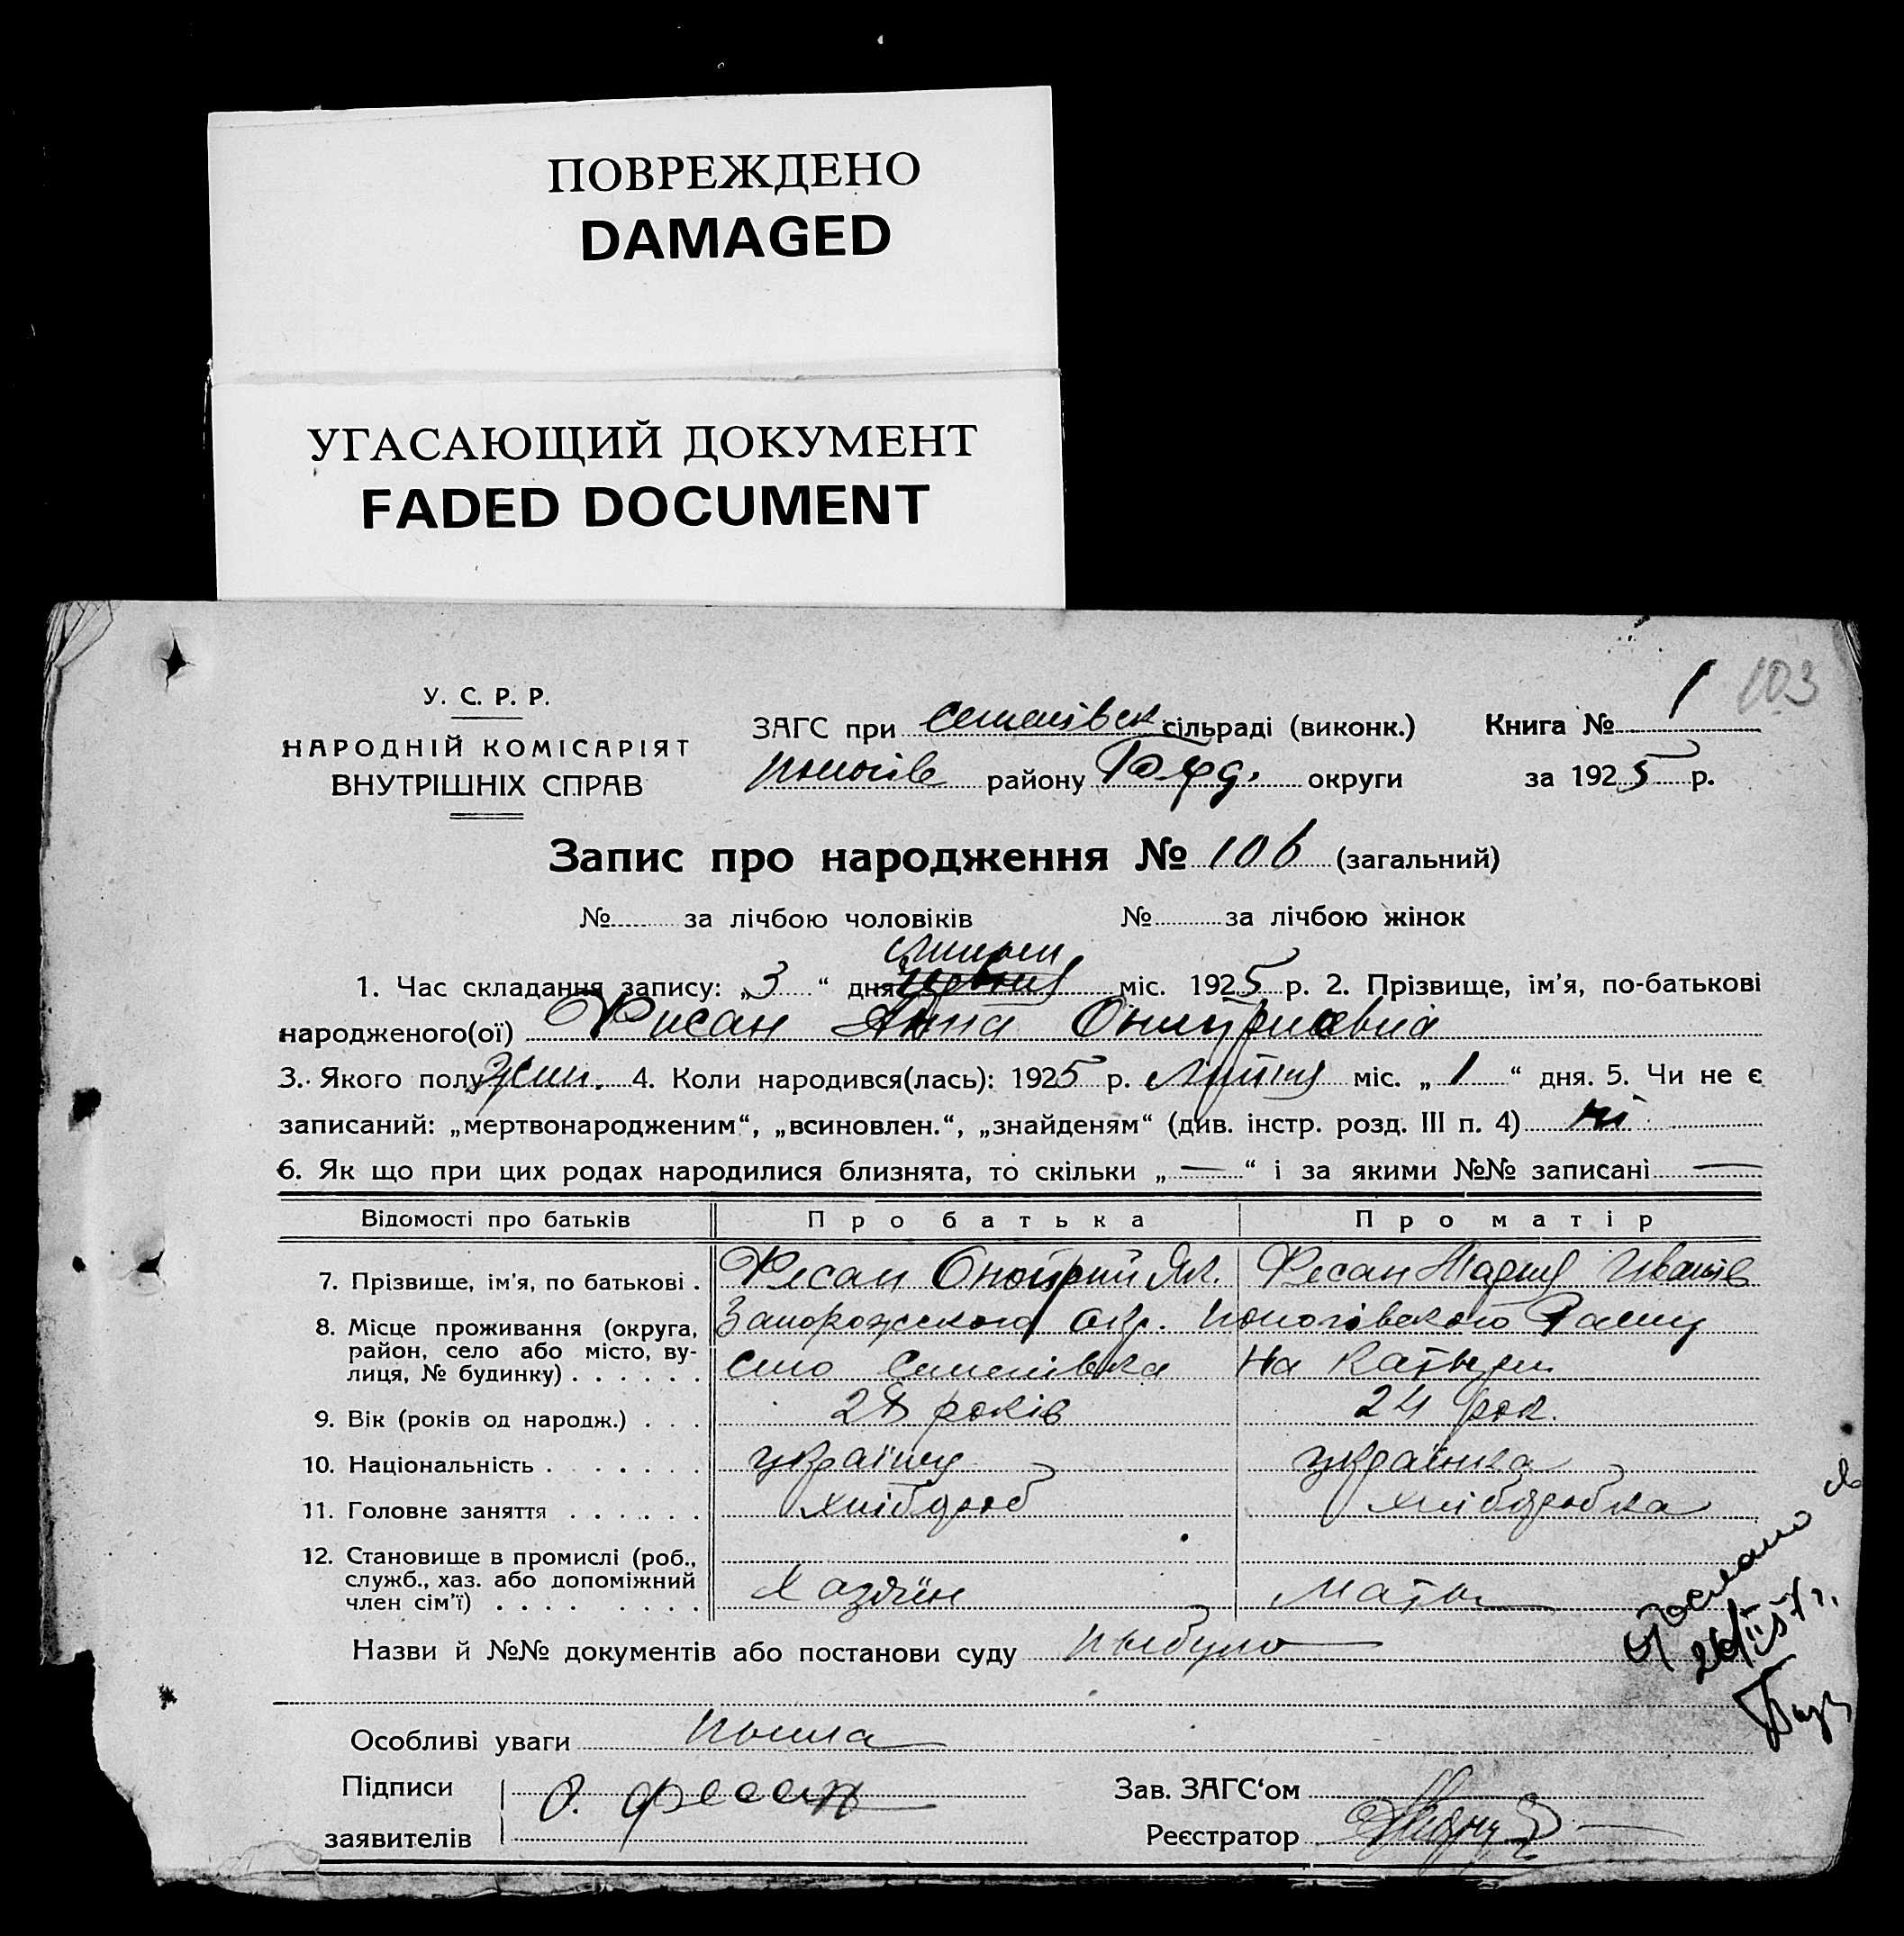 ПОВРЕЖДЕНО
DAMAGED
УГАСАЮЩИЙ ДОКУМЕНТ
FADED DOCUMENT
103
У. С. Р. Р.
НАРОДНІЙ КОМІСАРІЯТ
ВНУТРІШНІХ СПРАВ
ЗАГС при Семенівск сільраді (виконк.) Книга № 1
району округи за 1925 р.
Запис про народження № 106 (загальний)
№ за лічбою чоловіків № за лічбою жінок
1. Час складання запису: „3“ дня міс. 1925 р. 2. Прізвище, ім'я, по-батькові
народженого(ої) Фисан Анна
3. Якого полу жин. 4. Коли народився(лась): 1925 р. міс. „1“ дня. 5. Чи не є
записаний: „мертвонародженим“, „всиновлен.“, „знайденям“ (див. інстр. розд. III п. 4) ні
6. Як що при цих родах народилися близнята, то скільки „—“ і за якими №№ записані —
Відомості про батьків Про батька Про матір
7. Прізвище, ім'я, по батькові . Фесан Фесан Мария Иванів
8. Місце проживання (округа, район, село або місто, вулиця, № будинку) Запорожського окр. Пологівского
село Семенівка
9. Вік (років од народж.) . . . 28 років 24 рок.
10. Національність українец українка
11. Головне заняття хлібороб хліборобка
12. Становище в промислі (роб., служб., хаз. або допоміжний член сім'ї) Хазяїн Мать
Назви й №№ документів або постанови суду
Особливі уваги
Підписи О. фесан Зав. ЗАГС'ом
заявителів Реєстратор